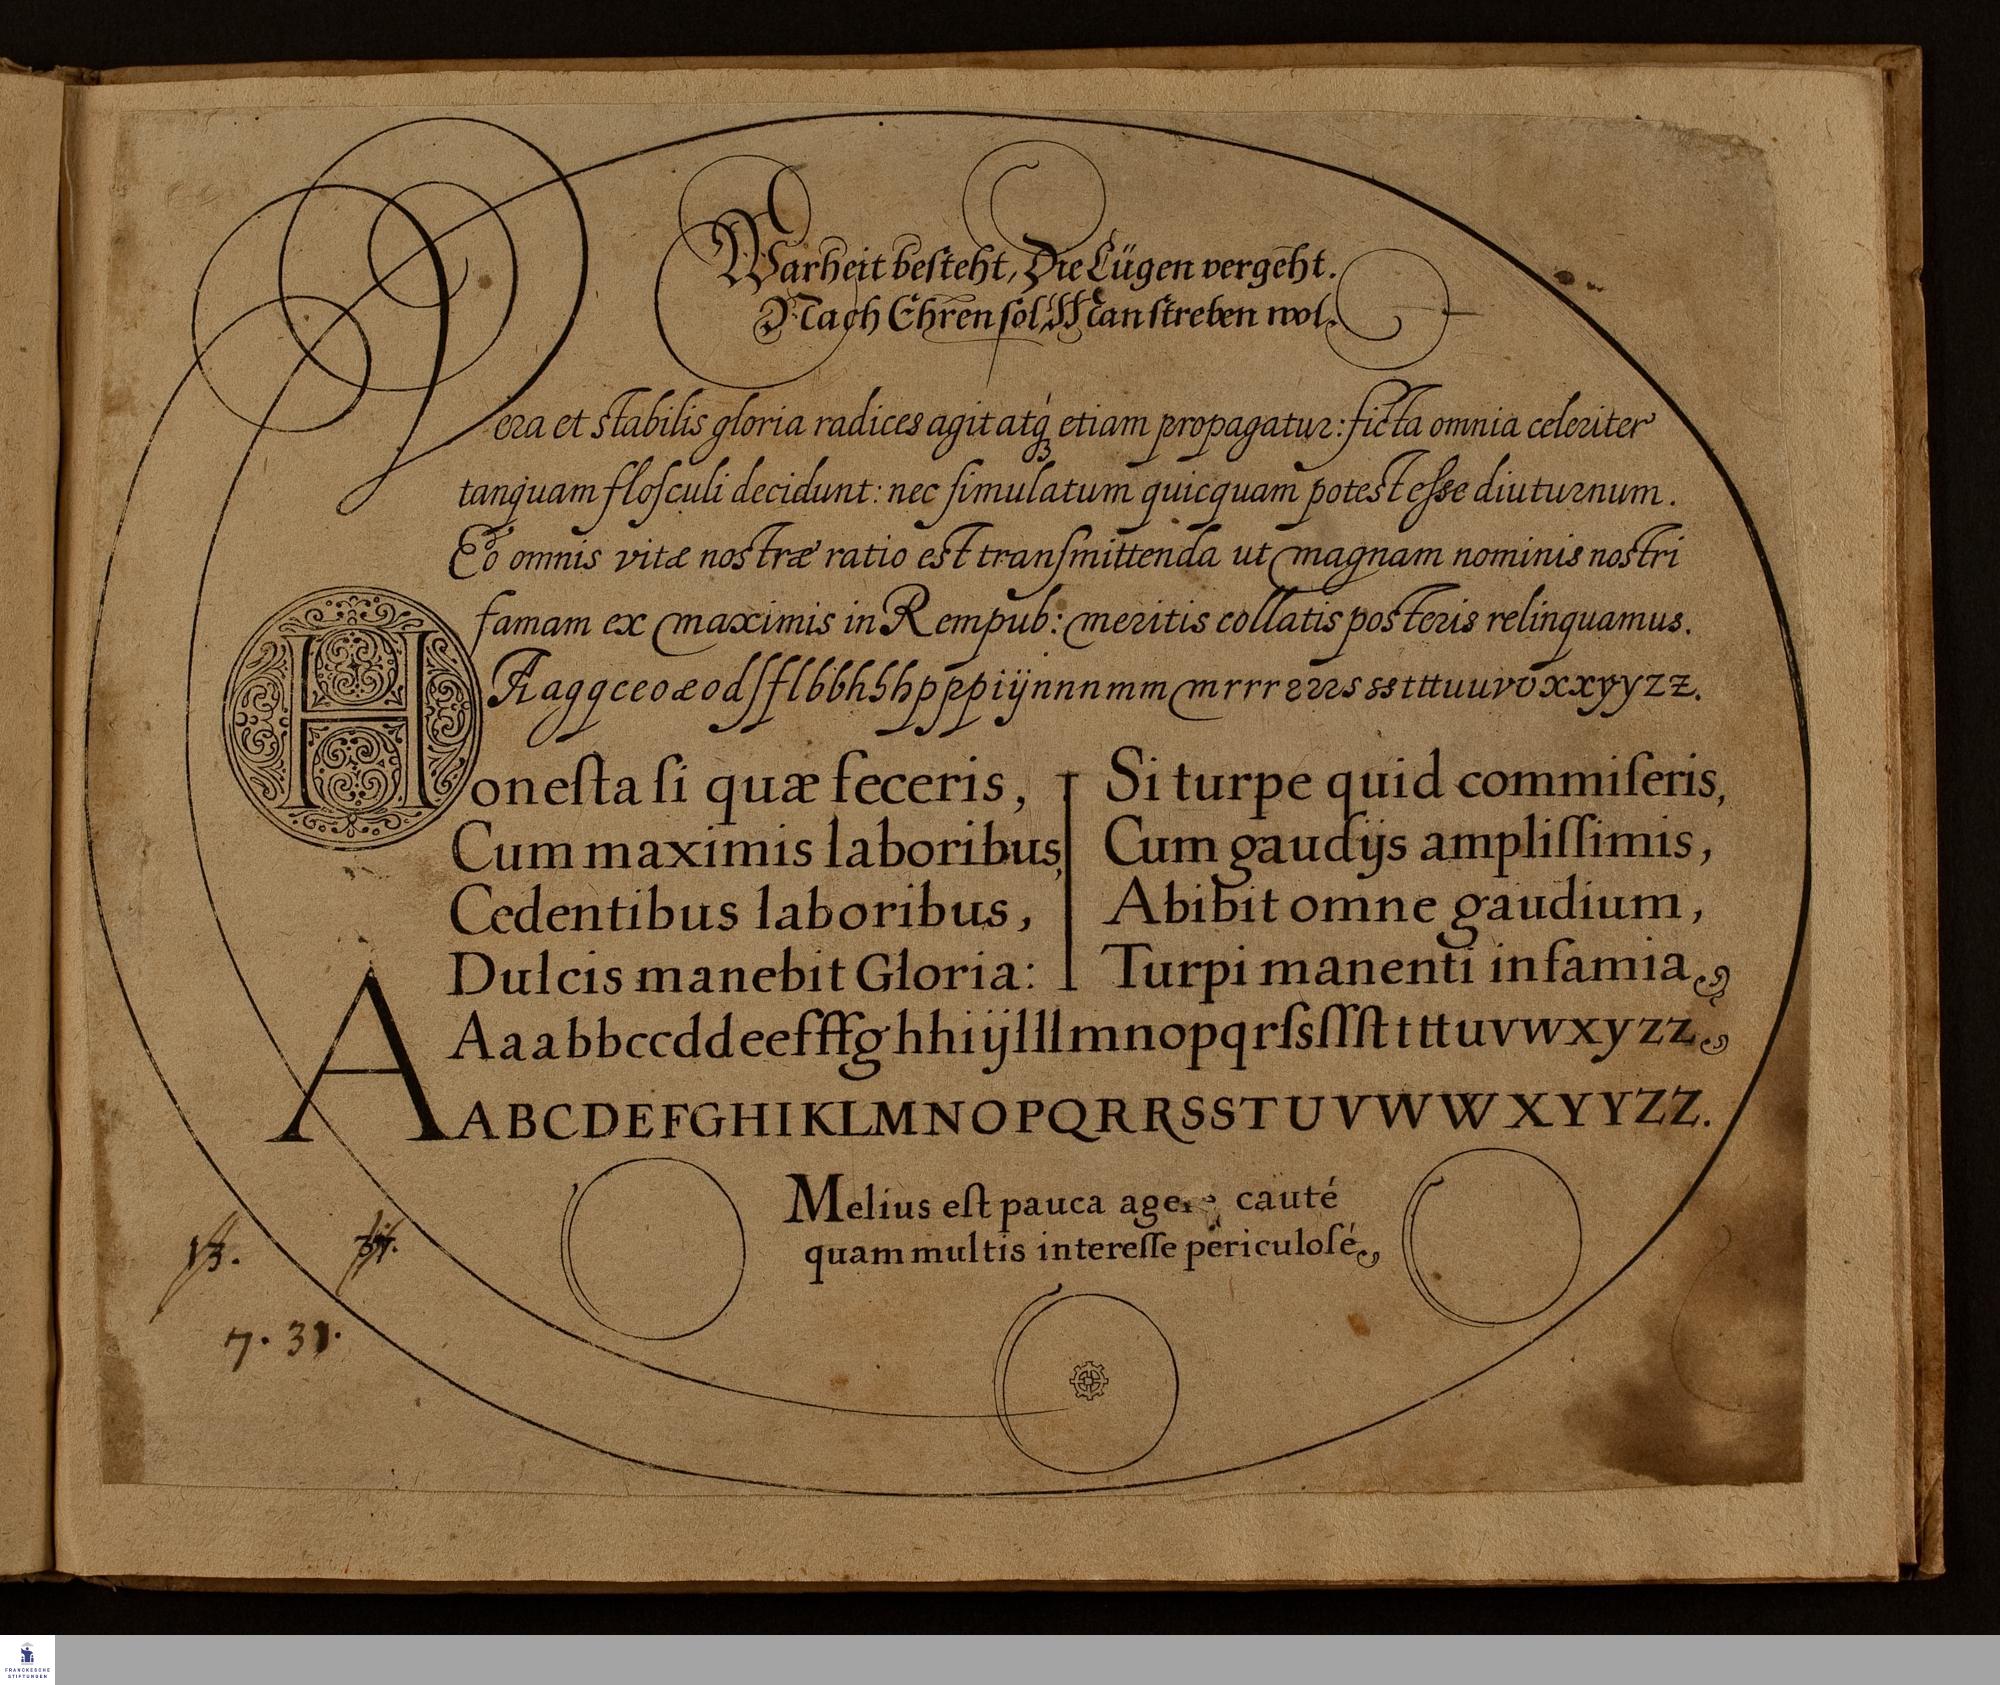 Warheit beſteht, Die Lügen vergeht.
Nach Ehren ſol Man ſtreben wol.
Vera et stabilis gloria radices agit atq́ꝫ etiam propagatur: ficta omnia celeriter
tanquam floſculi decidunt: nec ſimulatum quicquam potest eſse diuturnum.
Eo omnis vitæ nostræ ratio est tranſmittenda ut magnam nominis nostri
famam ex maximis in Rempub: meritis collatis posteris relinquamus.
A a g q c e o æ o d ſ ſ f l b b h h h p p p p i ÿ n n n m m m r r r ꝛ ꝛ ꝛ s s s t tt u u v v x x y y z z.
Honeſta ſi quæ feceris,
Cum maximis laboribus,
Cedentibus laboribus,
Dulcis manebit Gloria:
Si turpe quid commiſeris,
Cum gaudijs ampliſſimis,
Abibit omne gaudium,
Turpi manenti infamia
A A a a b b c c d d e e f ff g h h i ÿ l l l m n o p q r ſ s ſſ ſt t tt u v w x y z z
A B C D E F G H I K L M N O P Q R R S S T U V W W X Y Y Z Z.
Melius eſt pauca agere cauté
quam multis intereſſe periculoſé
13.
7. 31.
FRANCKESCHE
STIFTUNGEN